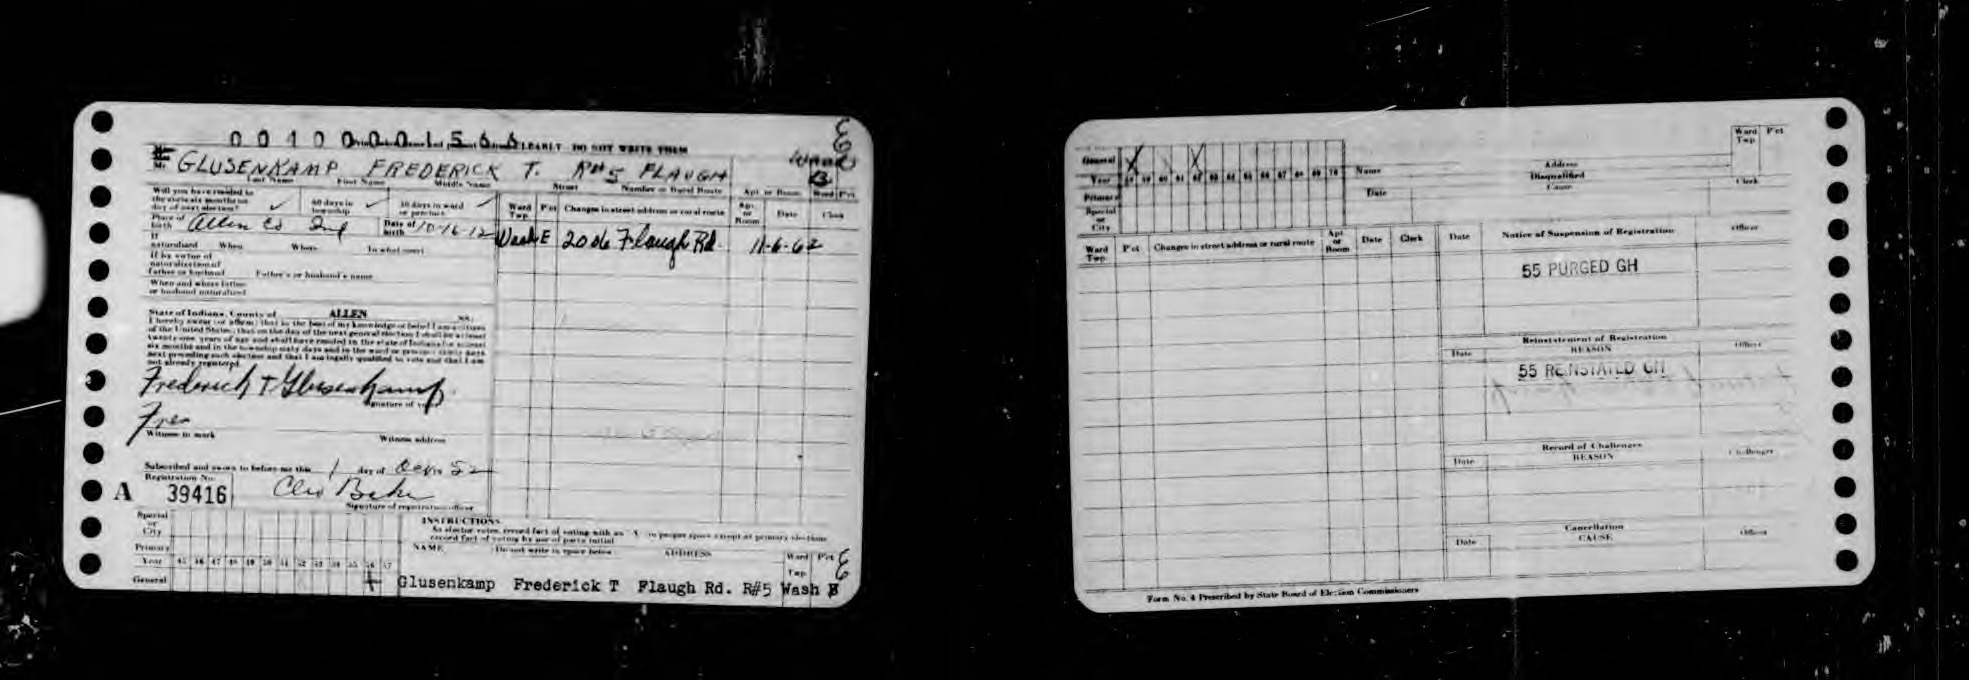 0 0 1 0 0 0 0 1 5 6 6 CLEARLY DO NOT WRITE THEM
E
Mr. GLUSENKAMP FREDERICK T. R#5 FLAUGH
Last Name First Name Middle Name Street Number or Rural Route Apt or Room Ward Pct
B
Will you have resided in
the state six months on
day of next election? ✓ 60 days in
township ✓ 30 days in ward
or precinct ✓
Ward
Twp Pct Changes in street address or rural route Apt.
or
Room Date Clerk
Place of
birth Allen Co Ind Date of
birth 10-16-12
Wash E 2006 Flaugh Rd 11-6-62
If
naturalized When Where In what court
If by virtue of
naturalization of
father or husband Father's or husband's name
When and where father
or husband naturalized
State of Indiana, County of ALLEN ss:
I hereby swear (or affirm) that to the best of my knowledge or belief I am a citizen
of the United States; that on the day of the next general election I shall be at least
twenty-one years of age and shall have resided in the state of Indiana for at least
six months and in the township sixty days and in the ward or precinct thirty days
next preceding such election and that I am legally qualified to vote and that I am
not already registered.
Frederick T Glusenkamp
Signature of voter
Witness to mark Witness address
Subscribed and sworn to before me this 1 day of Oct 19 52
Registration No.
A 39416
Signature of registration officer
Special
or
City
Primary
Year 45 46 47 48 49 50 51 52 53 54 55 56 57
General
INSTRUCTIONS
As elector votes, record fact of voting with an X in proper space except at primary elections
record fact of voting by use of party initial
NAME Do not write in space below ADDRESS Ward
Twp. Pct E
E
Glusenkamp Frederick T Flaugh Rd. R#5 Wash
General X X
Year 58 59 60 61 62 63 64 65 66 67 68 69 70
Primary
Special
or
City
Name Address
Ward
Twp Pct
Disqualified
Date Cause Clerk
Ward
Twp. Pct Changes in street address or rural route Apt
or
Room Date Clerk
Date Notice of Suspension of Registration Officer
55 PURGED GH
Reinstatement of Registration
Date REASON Officer
55 REINSTATED GH
Record of Challenges
Date REASON Challenger
Cancellation
Date CAUSE Officer
Form No. 4 Prescribed by State Board of Election Commissioners